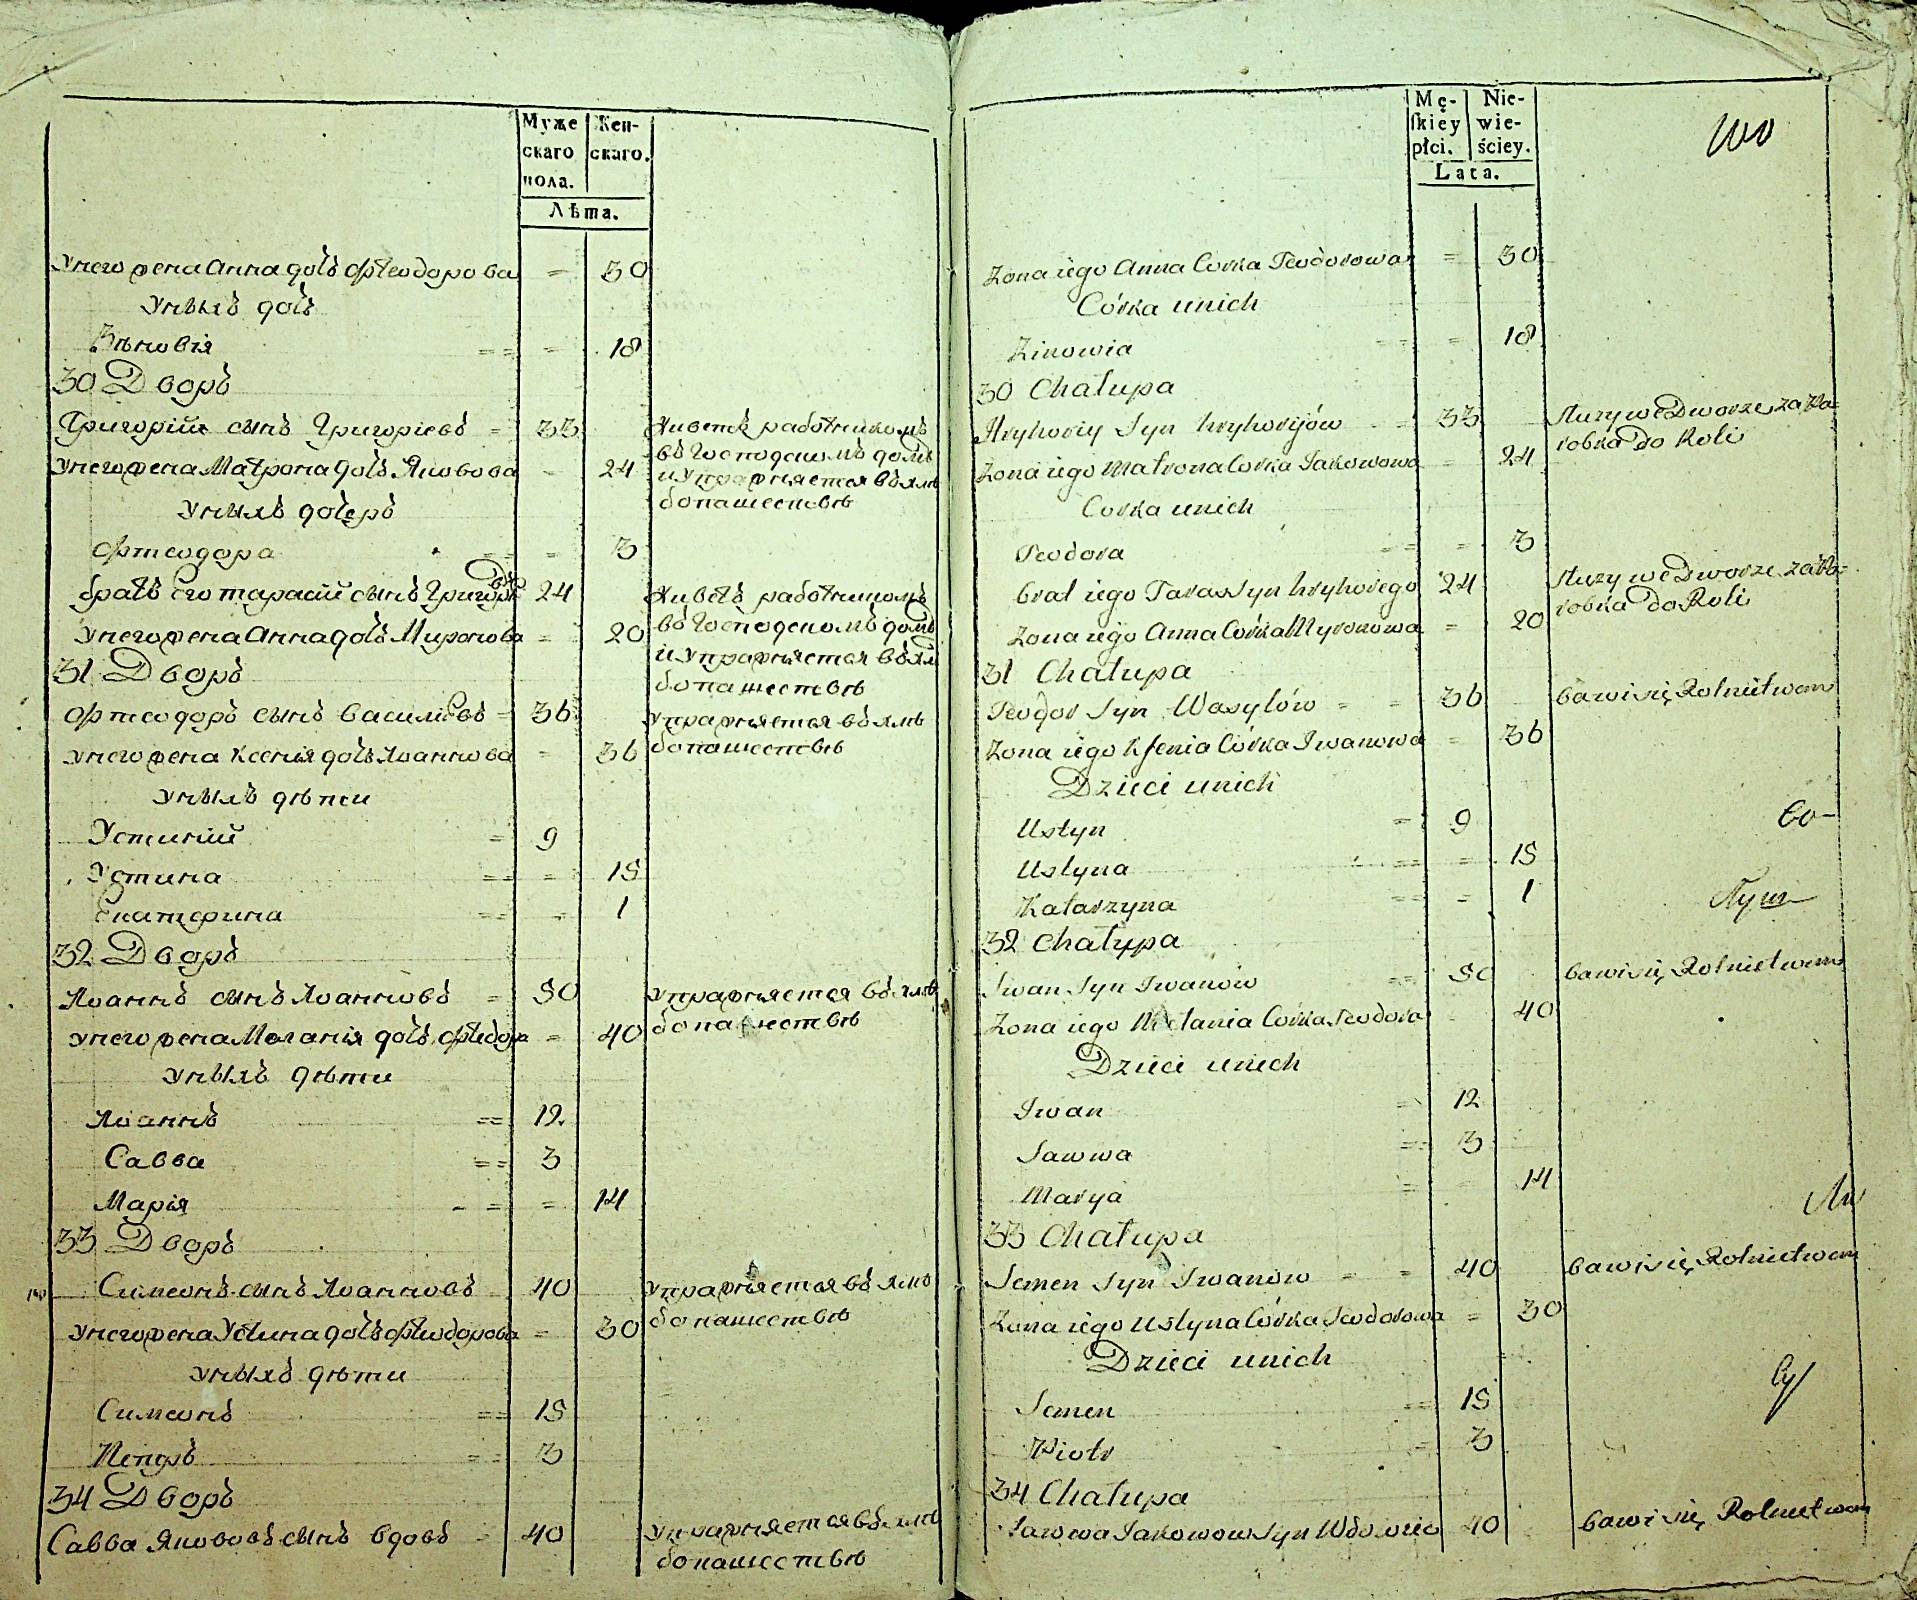 Муже
скаго
пола.
Жен-
скаго.
Лѣта.
Унего жена Анна дочь Фтеодорова = 30
Унихъ дочь
Зѣновія == = 18
30 Дворъ
Григорій сынъ Григоріевъ = 33
Живетъ работникомъ
въ Господскомъ домѣ
и Упражняется вхлѣ
бопашествѣ
Унего жена Матрона дочь Яковова = 24
Унихъ дочеръ
Фтеодора == = 3
братъ Его тарасій сынъ Григорьевъ 24
Живетъ работникомъ
въ Господскомъ домѣ
и Упражняется вхлѣ
бопашествѣ
Унего жена Анна дочь Миронова = 20
31 Дворъ
Фтеодоръ сынъ Василіевъ = 36
Упражняется въ хлѣ
бопашествѣ
Унего жена Ксенія дочь Иоаннова = 36
Унихъ дѣтеи
Устиній = 9
Устина == = 15
Екатерина == = 1
32 Дворъ
Иоаннъ сынъ Иоанновъ = 50
Упражняется въ хлѣ
бопашествѣ
Унего жена Меланія дочь Фтеодора = 40
Унихъ дѣти
Иоаннъ == 12
Савва == 3
Марія = = 14
33 Дворъ
Симеонъ сынъ Иоанновъ 40
Упражняется въ хлѣ
бопашествѣ
Унего жена Устина дочь Фтеодорова = 30
Унихъ дѣти
Симеонъ == 15
Петръ == 3
34 Дворъ
Савва Яकовъ сынъ вдовъ = 40
Упражняется въ хлѣ
бопашествѣ
Mę-
skiey
płci.
Nie-
wie-
ściey.
Lata.
Zona iego Anna Corka Teodorowa = 30
Córka unich
Zinowia == = 18
30 Chałupa
Hryhoriy Syn hryhorijów = 33
Służy we Dworze za Pa-
robka do Roli
Zona iego Matrona Corka Jakowowa = 24
Corka unich
Teodora == = 3
brat iego Taras syn hryhorego 24
Służy we Dworze za Pa-
robka do Roli
Zona iego Anna Córka Myronowa = 20
31 Chałupa
Teodor Syn Wasylów = = 36 bawi się Rolnictwem
Zona iego Ksenia Córka Iwanowa = 36
Dzieci unich
Ustyn = 9
Ustyna == = 15
Katarzyna == = 1
32 Chałupa
Iwan Syn Iwanów == 50 bawi się Rolnictwem
Zona iego Melania Córka Teodora 40
Dzieci unich
Iwan = 12
Sawwa == 3
Marya = = 14
33 Chałupa
Semen Syn Iwanow = = 40 bawi się Rolnictwem
Zona iego Ustyna Córka Teodorowa = 30
Dzieci unich
Semen == 15
Piotr = 3
34 Chałupa
Sawwa Jakowow Syn Wdowiec 40 bawi się Rolnictwem